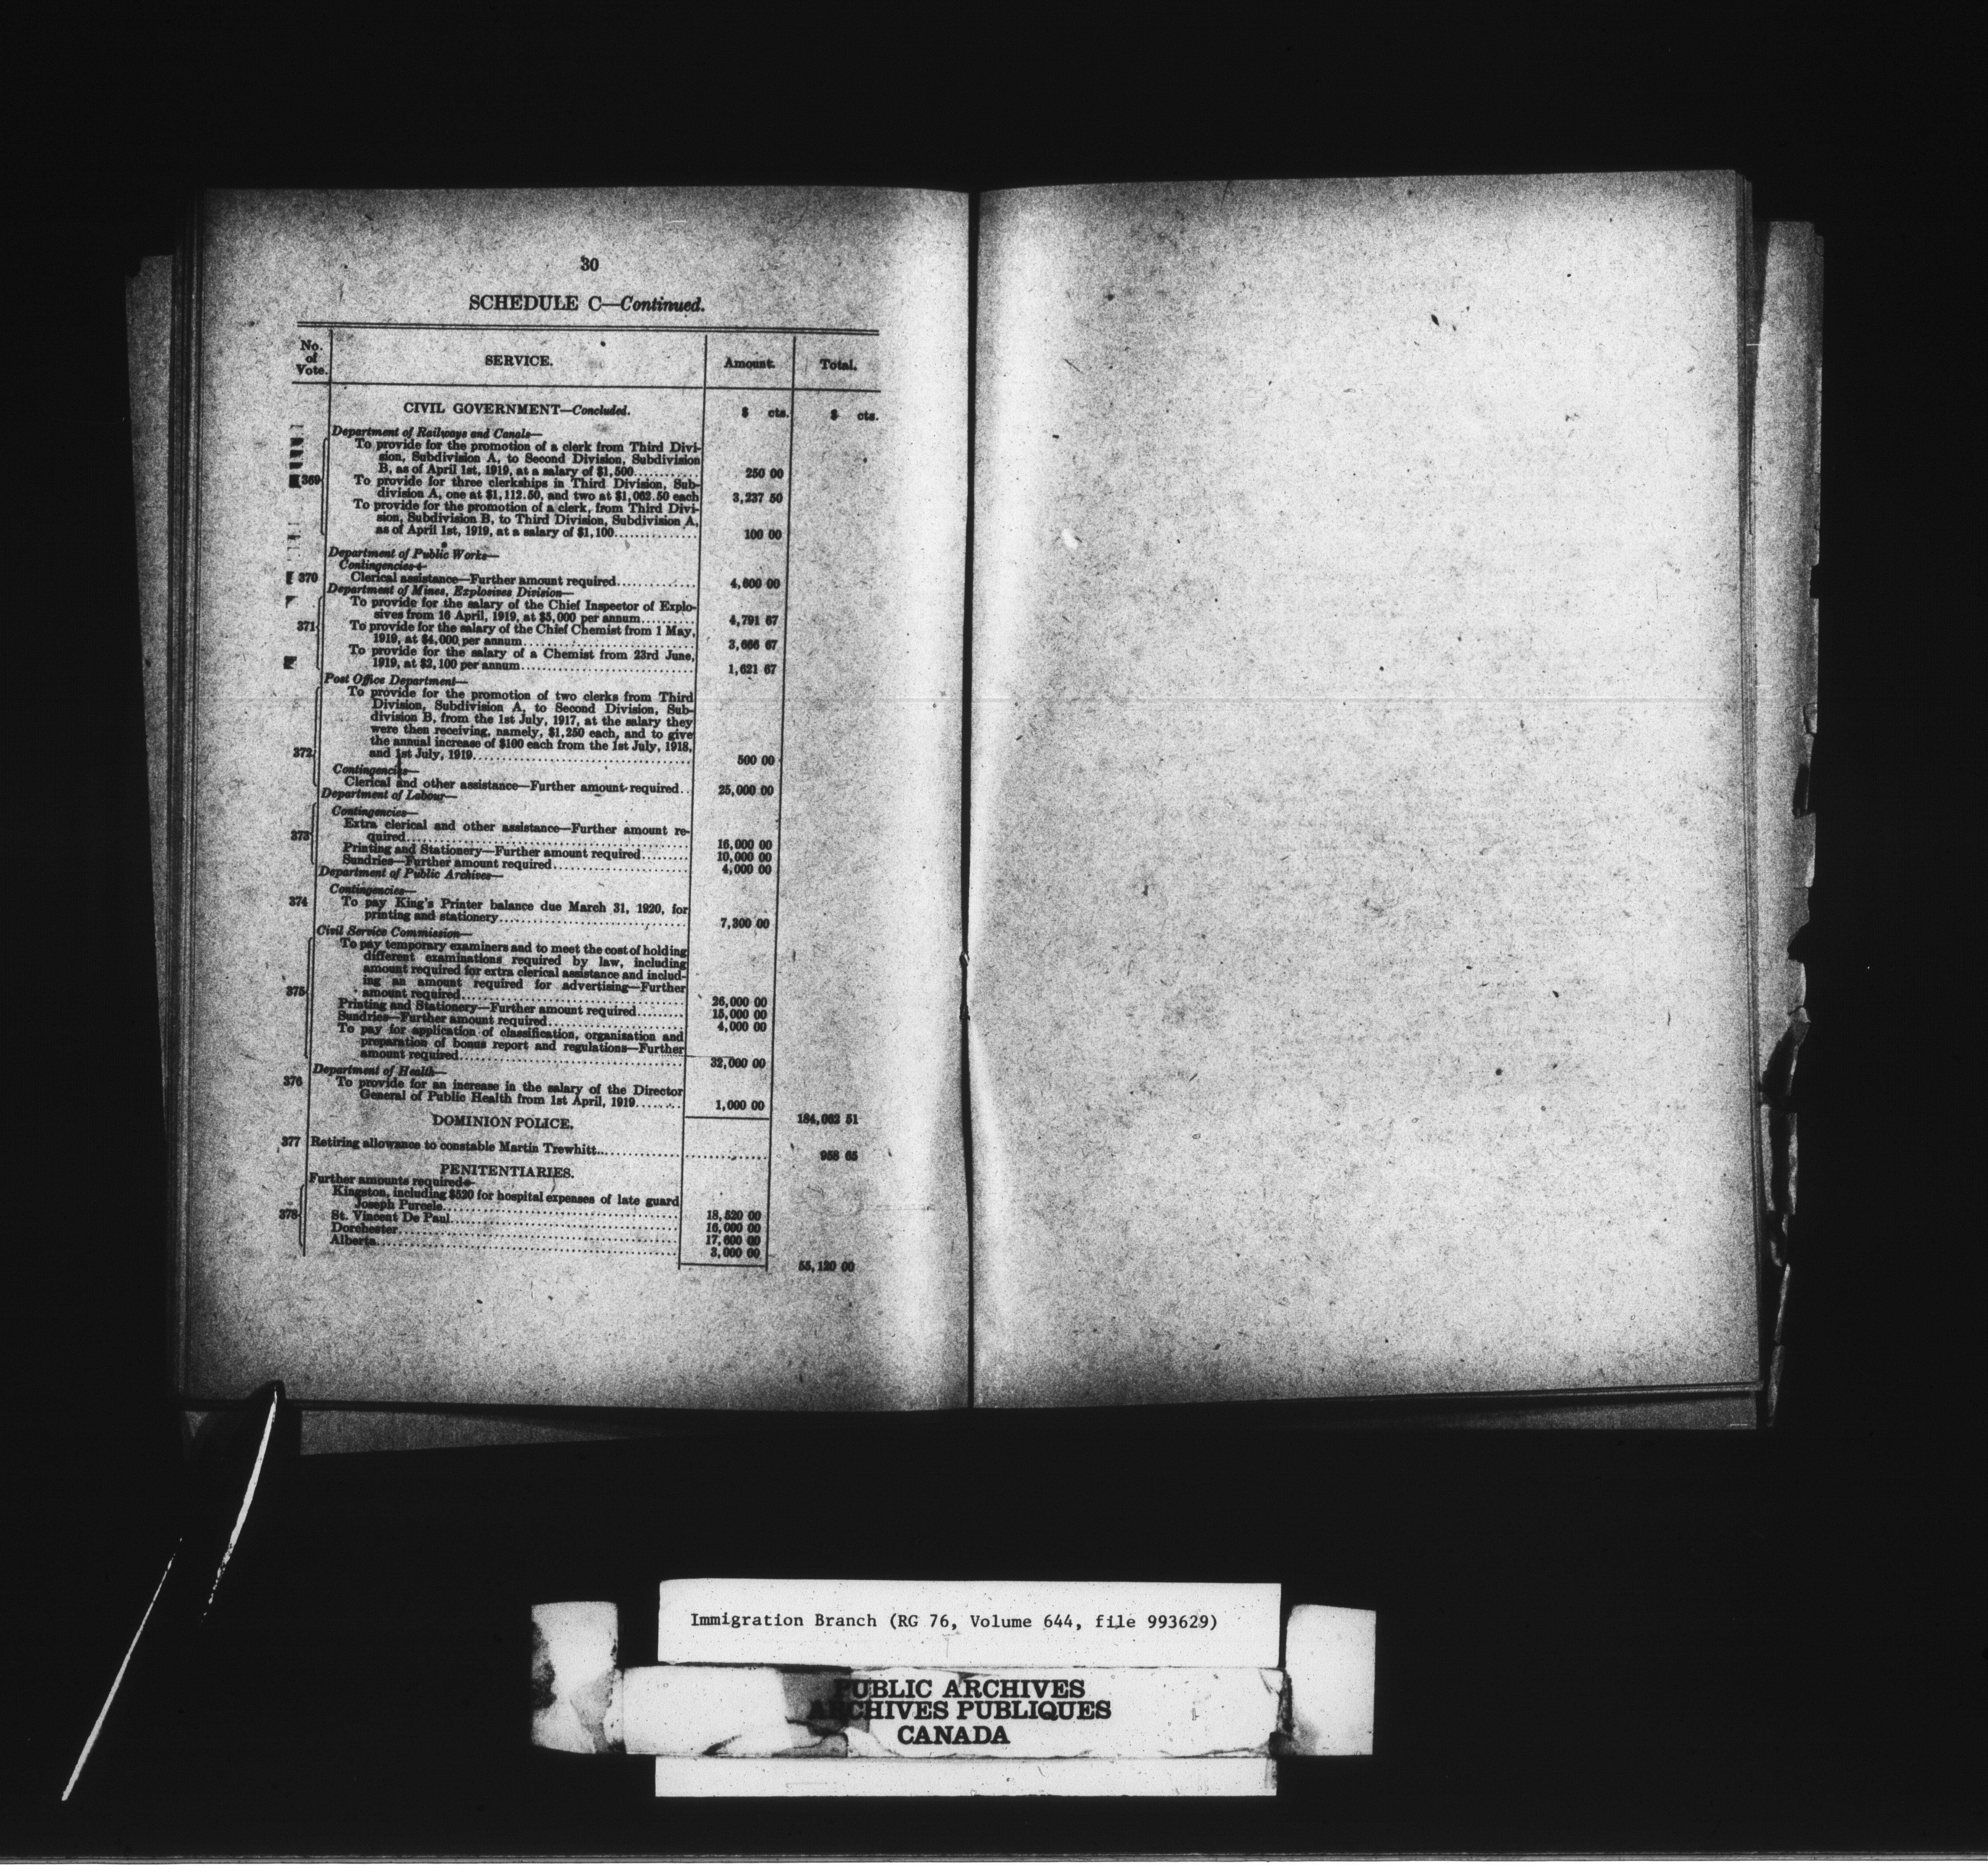 30
SCHEDULE C—Continued.
No. of Vote. SERVICE. Amount. Total.
CIVIL GOVERNMENT—Concluded. $ cts. $ cts.
Department of Railways and Canals—
To provide for the promotion of a clerk from Third Divi-
sion, Subdivision A, to Second Division, Subdivision
B, as of April 1st, 1919, at a salary of $1,500.......... 250 00
369 To provide for three clerkships in Third Division, Sub-
division A, one at $1,112.50, and two at $1,062.50 each 3,237 50
To provide for the promotion of a clerk, from Third Divi-
sion, Subdivision B, to Third Division, Subdivision A,
as of April 1st, 1919, at a salary of $1,100.............. 100 00
Department of Public Works—
Contingencies—
370 Clerical assistance—Further amount required............. 4,600 00
Department of Mines, Explosives Division—
To provide for the salary of the Chief Inspector of Explo-
sives from 16 April, 1919, at $5,000 per annum......... 4,791 67
371 To provide for the salary of the Chief Chemist from 1 May,
1919, at $4,000 per annum.............................. 3,666 67
To provide for the salary of a Chemist from 23rd June,
1919, at $2,100 per annum.............................. 1,621 67
Post Office Department—
To provide for the promotion of two clerks from Third
Division, Subdivision A, to Second Division, Sub-
division B, from the 1st July, 1917, at the salary they
were then receiving, namely, $1,250 each, and to give
the annual increase of $100 each from the 1st July, 1918,
372 and 1st July, 1919...................................... 500 00
Contingencies—
Clerical and other assistance—Further amount required.. 25,000 00
Department of Labour—
Contingencies—
373 Extra clerical and other assistance—Further amount re-
quired.................................................. 16,000 00
Printing and Stationery—Further amount required........ 10,000 00
Sundries—Further amount required....................... 4,000 00
Department of Public Archives—
Contingencies—
374 To pay King's Printer balance due March 31, 1920, for
printing and stationery................................. 7,300 00
Civil Service Commission—
To pay temporary examiners and to meet the cost of holding
different examinations required by law, including
amount required for extra clerical assistance and includ-
ing an amount required for advertising—Further
375 amount required........................................ 26,000 00
Printing and Stationery—Further amount required........ 15,000 00
Sundries—Further amount required....................... 4,000 00
To pay for application of classification, organisation and
preparation of bonus report and regulations—Further
amount required........................................ 32,000 00
Department of Health—
376 To provide for an increase in the salary of the Director
General of Public Health from 1st April, 1919........ 1,000 00
184,062 51
DOMINION POLICE.
377 Retiring allowance to constable Martin Trewhitt............ 958 65
PENITENTIARIES.
Further amounts required—
Kingston, including $520 for hospital expenses of late guard
Joseph Purcele.......................................... 18,520 00
378 St. Vincent De Paul..................................... 16,000 00
Dorchester.............................................. 17,600 00
Alberta................................................. 3,000 00
55,120 00
Immigration Branch (RG 76, Volume 644, file 993629)
PUBLIC ARCHIVES
ARCHIVES PUBLIQUES
CANADA